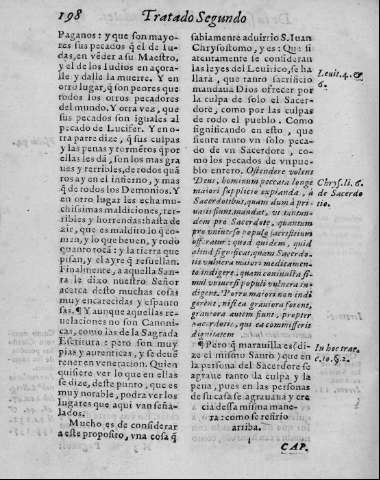 198 Tratado Segundo
Paganos: y que son mayo-
res sus pecados q̃ el de Iu-
das, en vēder a su Maestro,
y el de los Iudios en açora-
lle y dalle la muerte. Y en
otro lugar, q̃ son peores que
todos los otros pecadores
del mundo. Y otra vez, que
sus pecados son iguales al
pecado de Lucifer. Y en o-
tra parte dize, q̃ sus culpas
y las penas y tormētos q̃ por
ellas les dā, son los mas gra
ues y terribles, de todos quā
tos ay en el infierno, y mas
q̃ de todos los Demonios. Y
en otro lugar les echa mu-
chissimas maldiciones, ter-
ribles y horrendas hasta de
zir, que es maldito lo q̃ co-
men, y lo que beuen, y todo
quanto tocā: y la tierra que
pisan, y el ayre q̃ resuellan.
Finalmente, a aquella San-
ta le dixo nuestro Señor
acerca desto muchas cosas
muy encarecidas y espanto
sas. ¶ Y aunque aquellas re-
uelaciones no son Canoni-
cas, como las de la Sagrada
Escritura: pero son muy
pias y autenticas, y se deuē
tener en veneracion. Quien
quisiere ver lo que en ellas
se dize, deste punto, que es
muy notable, podra ver los
lugares que aqui van seña-
lados.
Mucho es de considerar
a este proposito, vna cosa q̃
sabiamente aduirtio S. Iuan
Chrysostomo, y es: Que si
atentamente se consideran
las leyes del Leuitico, se ha
llara, que tanto sacrificio
mandaua Dios ofrecer por
la culpa de solo el Sacer-
dote, como por las culpas
de todo el pueblo. Como
significando en esto, que
siente tanto vn solo peca-
do de vn Sacerdote, co-
mo los pecados de vn pue-
blo entero. Ostendere volens
Deus, hominum peccata longe
maiori supplicio expianda, à
Sacerdotibus, quam dum à pri-
uatis fiunt, mandat, vt tantun-
dem pro Sacerdote, quantum
pro vniuerso populo sacrificium
offeratur: quod quidem, quid
aliud significat, quam Sacerdo-
tis vulnera maiori medicamen-
to indigere, quam coniuncta si-
mul vniuersi populi vulnera in-
digent. Porro maiori non indi-
gerent, nisi ea grauiora forent,
grauiora autem fiunt, propter
Sacerdotis, qui ea commiserit
dignitatem.
¶ Pero q̃ marauilla es (di-
ze el mismo Santo) que en
la persona del Sacerdote se
agraue tanto la culpa y la
pena, pues en las personas
de su casa se agrauaua y cre
cia dessa misma mane-
ra: como se refirio
arriba.
CAP.
Leuit. 4. &
6.
Chrys. li. 6.
de Sacerdo
tio.
In hoc trac.
c. 10. §. 2.